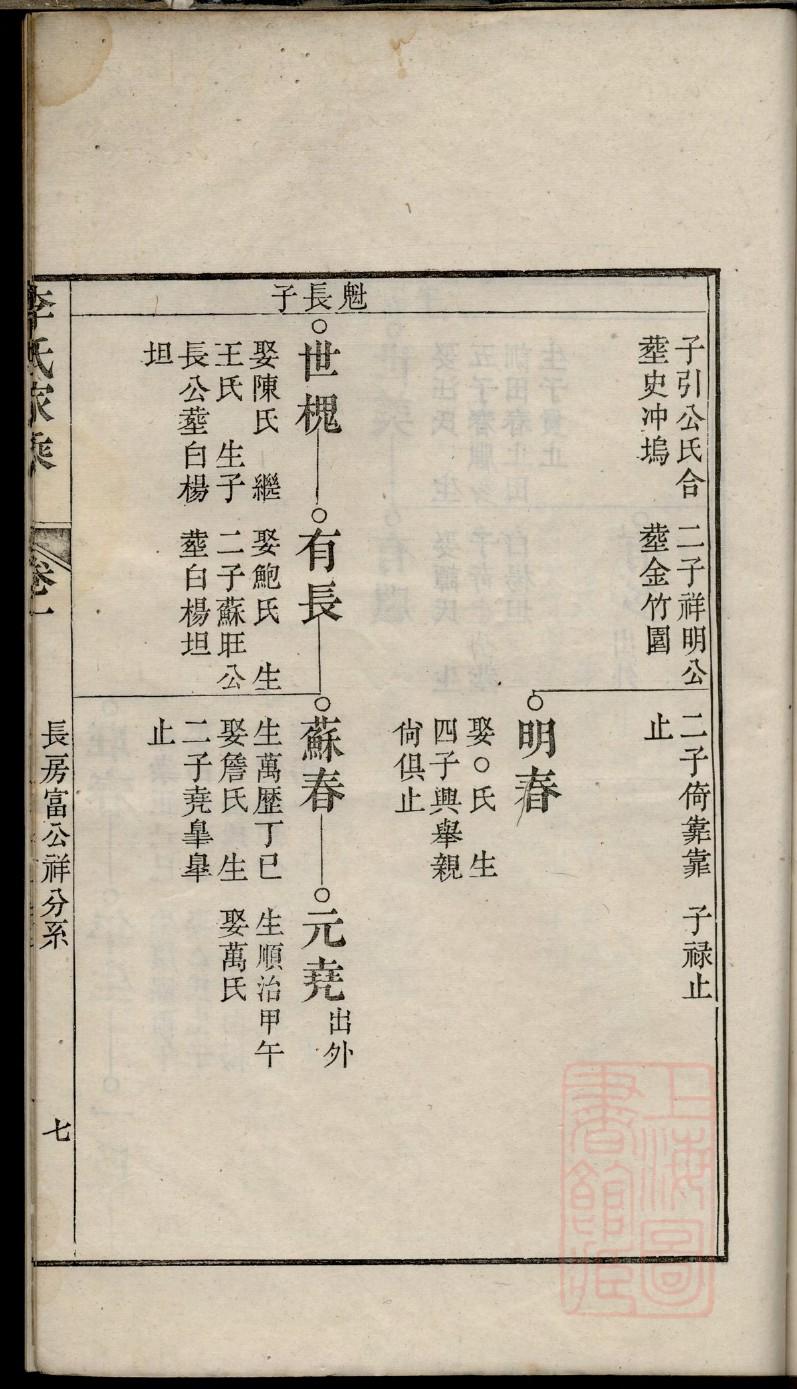 子引公氏合
塟史冲塢
二子祥明公
塟金竹園
二子倚靠靠
止
子禄止
明春
娶○氏 生
四子興舉親
尙俱止
魁長子
世槐
娶陳氏 繼
王氏 生子
長公塟白楊
坦
有長
娶鮑氏 生
二子蘇旺公
塟白楊坦
蘇春
生萬歴丁巳
娶詹氏 生
二子堯臯臯
止
元堯出外
生順治甲午
娶萬氏
李氏家乘
卷一
長房富公祥分系
七
上海圖
書館藏